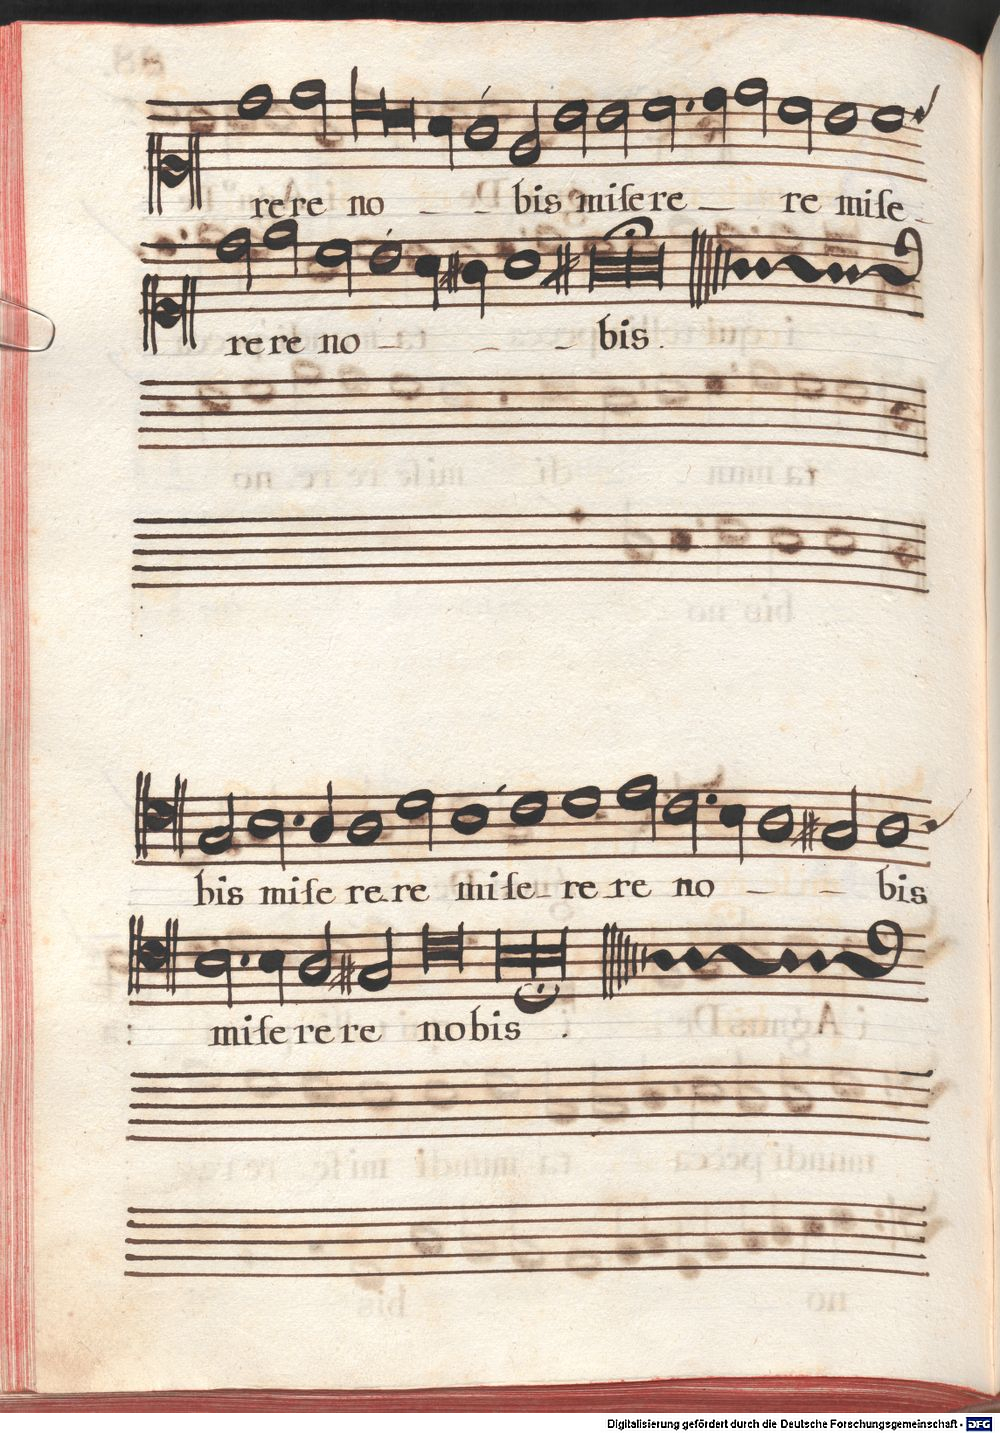 rere no - - bis miſere - re miſe -
rere no - - - bis.
bis miſe re-re miſe- re-re no - - bis
: miſerere nobis .
Digitalisierung gefördert durch die Deutsche Forschungsgemeinschaft - DFG